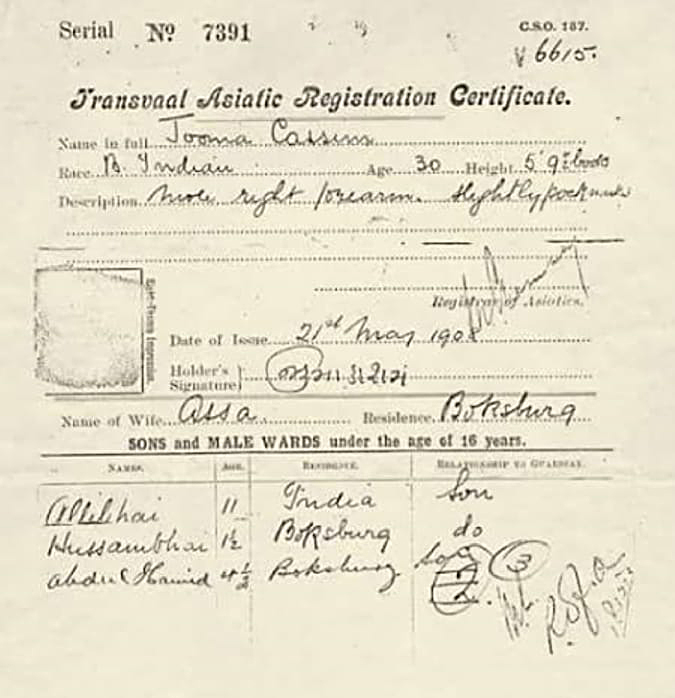 Serial No 7391
C.S.O. 187.
6615.
Transvaal Asiatic Registration Certificate.
Name in full Jooma Cassim
Race B. Indian Age 30 Height 5' 9"
Description mole right forearm. slightly
Registrar of Asiatics.
Date of Issue 21st May 1908
Holder's
Signature
Name of Wife Assa Residence Boksburg
SONS and MALE WARDS under the age of 16 years.
NAMES. AGE. RESIDENCE. RELATIONSHIP TO GUARDIAN.
Allibhai 11 India Son
Hussambhai 1½ Boksburg do
Abdul Hamid 4½ Boksburg son
3
2